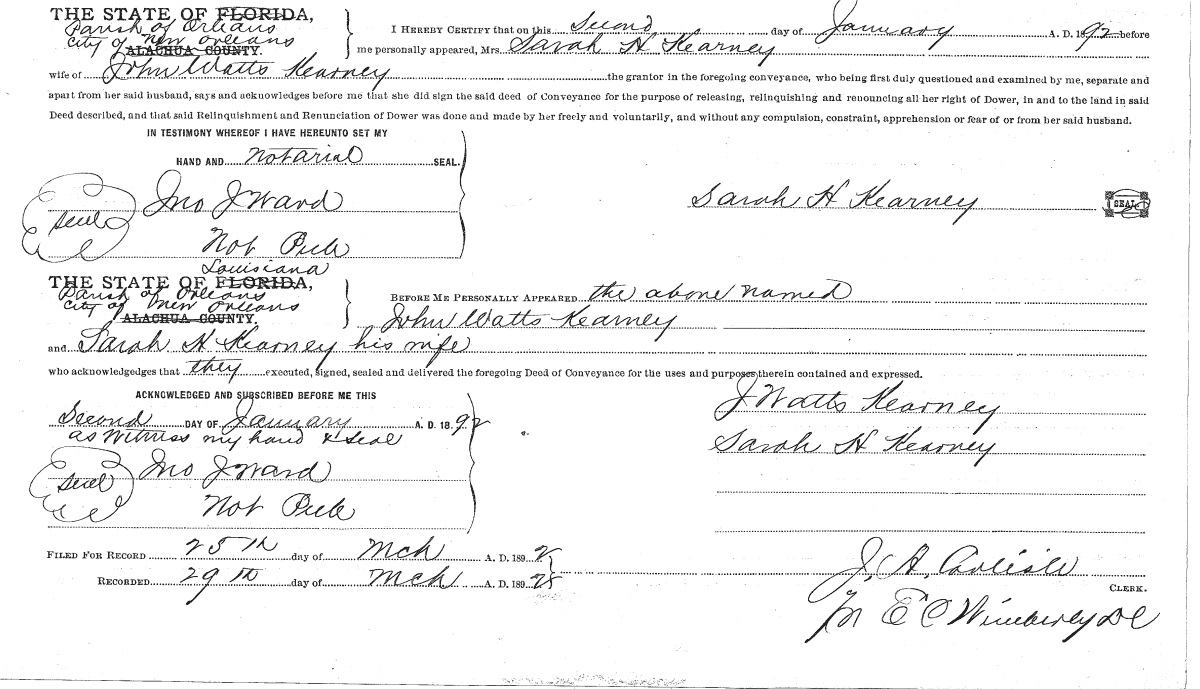 THE STATE OF FLORIDA,
Parish of Orleans
City of New Orleans
ALACHUA COUNTY.
I HEREBY CERTIFY that on this Second day of January A. D. 1892 before
me personally appeared, Mrs. Sarah H Kearney
wife of John Watts Kearney the grantor in the foregoing conveyance, who being first duly questioned and examined by me, separate and
apart from her said husband, says and acknowledges before me that she did sign the said deed of Conveyance for the purpose of releasing, relinquishing and renouncing all her right of Dower, in and to the land in said
Deed described, and that said Relinquishment and Renunciation of Dower was done and made by her freely and voluntarily, and without any compulsion, constraint, apprehension or fear of or from her said husband.
IN TESTIMONY WHEREOF I HAVE HEREUNTO SET MY
HAND AND Notarial SEAL.
Seal Jno J Ward
Sarah H Kearney SEAL
Not Pub
Louisiana
THE STATE OF FLORIDA,
Parish of Orleans
City of New Orleans
ALACHUA COUNTY.
BEFORE ME PERSONALLY APPEARED the above named
John Watts Kearney
and Sarah H Kearney his wife
who acknowledges that they executed, signed, sealed and delivered the foregoing Deed of Conveyance for the uses and purposes therein contained and expressed.
ACKNOWLEDGED AND SUBSCRIBED BEFORE ME THIS
Second DAY OF January A. D. 1892
as Witness my hand & Seal
J Watts Kearney
Sarah H Kearney
Seal Jno J Ward
Not Pub
FILED FOR RECORD 25th day of Mch A. D. 1892
RECORDED 29th day of Mch A. D. 189
J. A. Carlisle
CLERK.
E C Wimberley DC